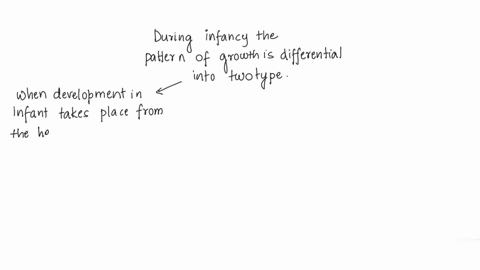 During infancy the
pattern of growth is differential
into two type.
when development in
Infant takes place from
the